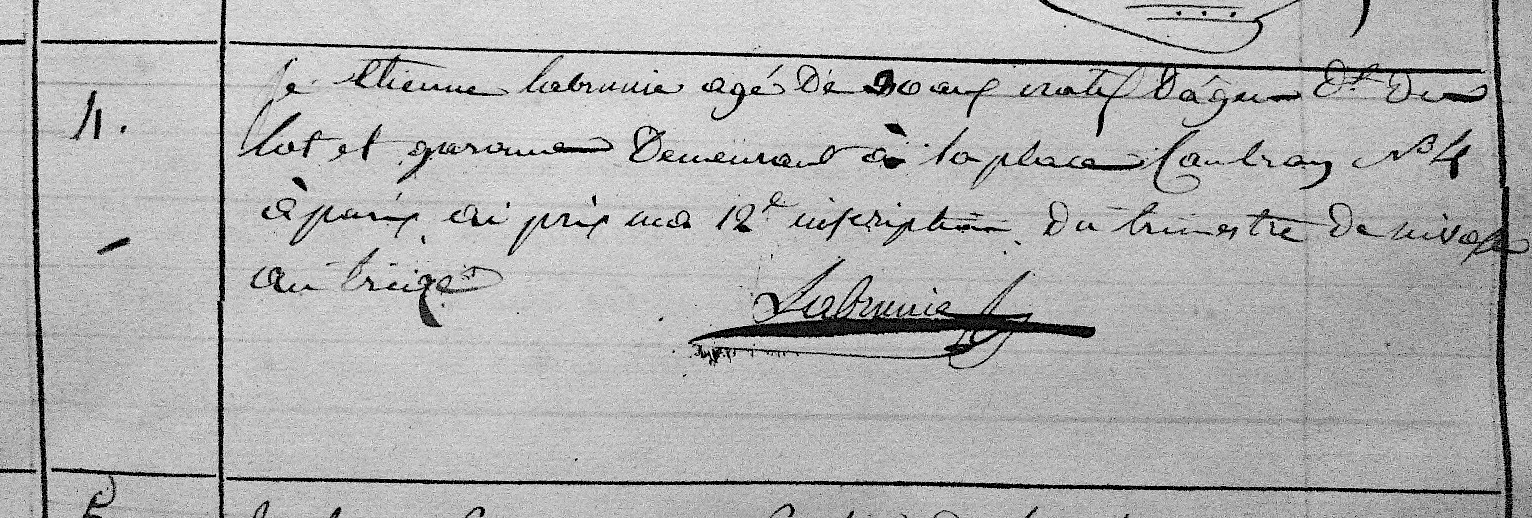 4.
je Etienne labrunie agé De 30 ans natif Dàgen Dt. Du
lot et garonne Demeurant à la place Cambray N° 4
à paris ai pris ma 12e inscription Du trimestre De nivose
an treize
Labrunie
5